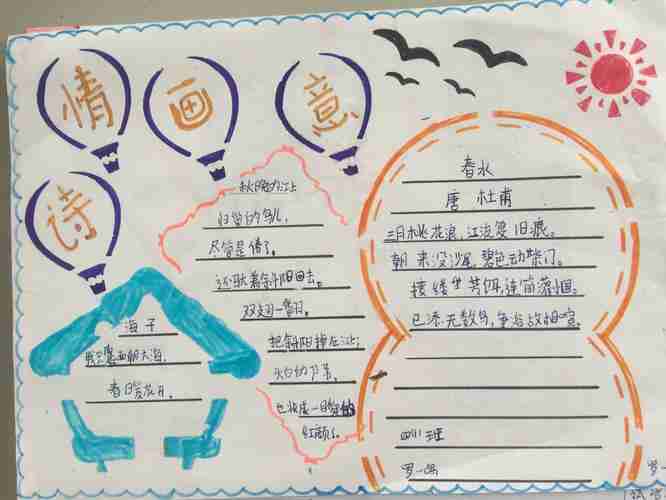 诗情画意
海子
我只愿面朝大海,
春暖花开。
秋晚的江上
归巢的鸟儿,
尽管是倦了,
还驮着斜阳回去。
双翅一翻,
把斜阳掉在江上;
头白的芦苇,
也妆成一瞬的
红颜了。
春水
唐 杜甫
三月桃花浪,江流复旧痕。
朝来没沙尾,碧色动柴门。
接缕垂芳饵,连筒灌小园。
已添无数鸟,争浴故相喧。
班
罗一